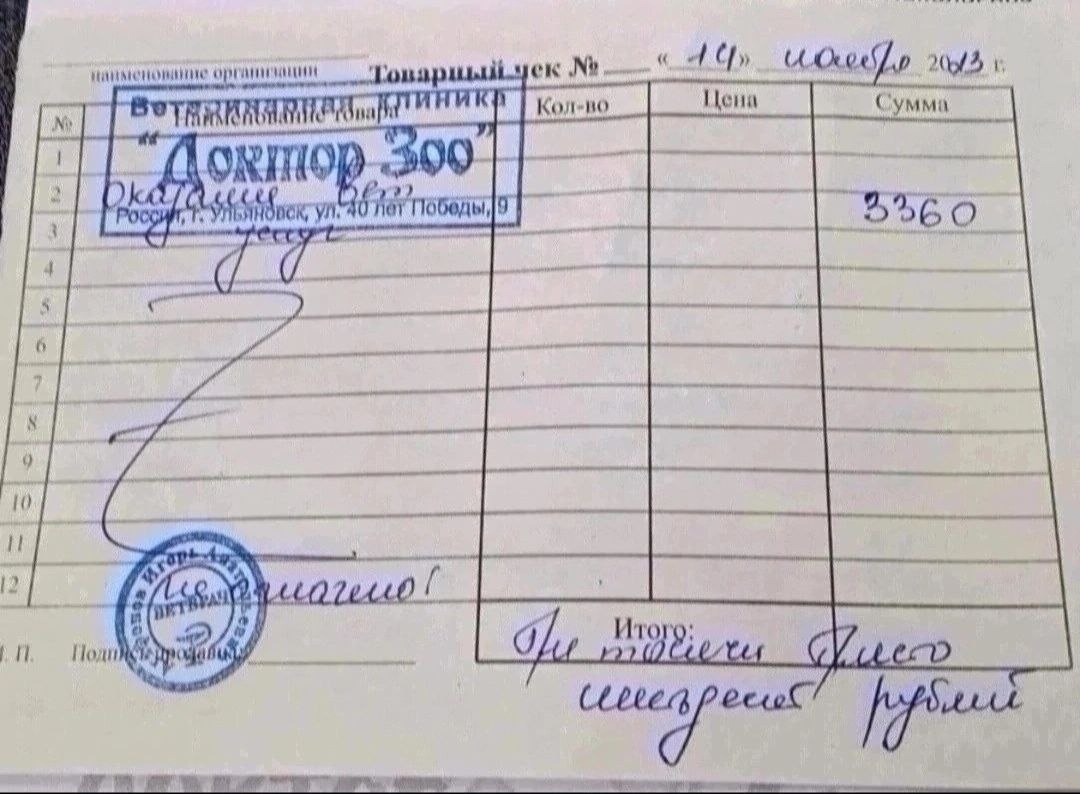 наименование организации Товарный чек № «14» ноября 2023 г.
№ Наименование товара Кол-во Цена Сумма
Ветеринарная клиника
"Доктор Зоо"
Россия, г. Ульяновск, ул. 40 лет Победы, 9
1
2 Оказание вет 3360
3 услуг
4
5
6
7
8
9
10
11
12
Игорь
ВЕТВРАЧ
Итого:
Три тысячи
рублей
Подпись продавца